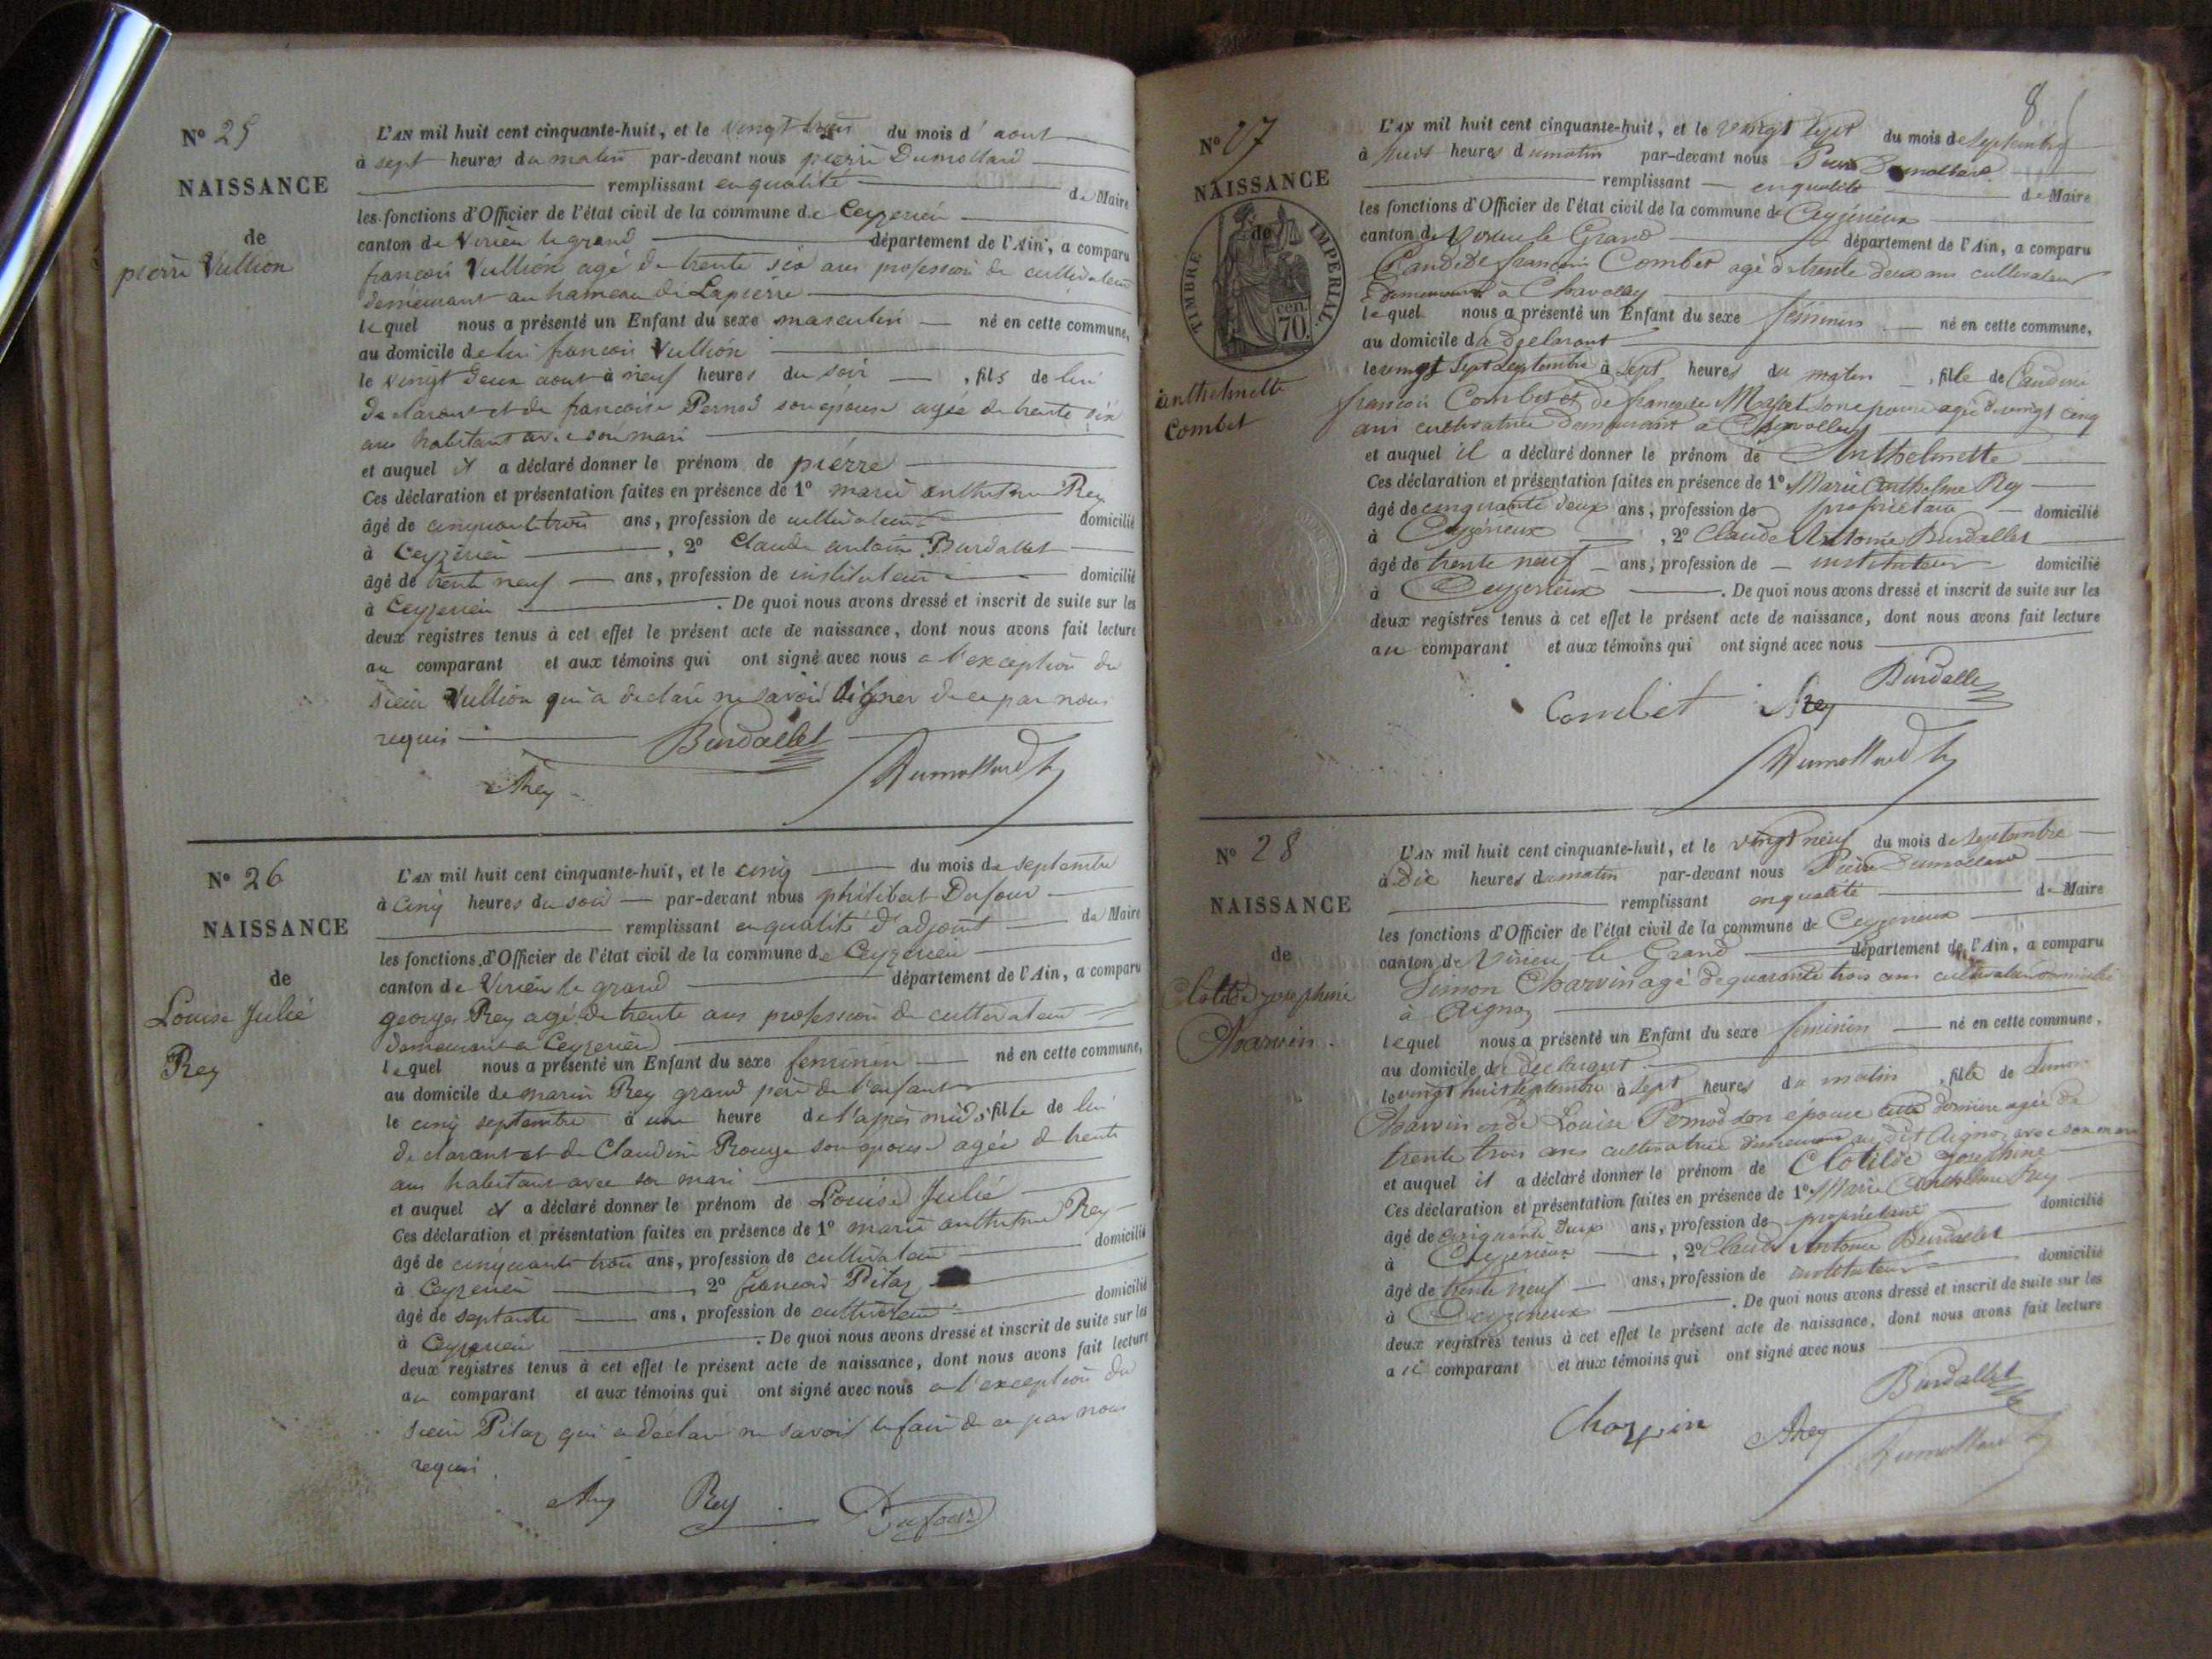 N° 25
NAISSANCE
de
pierre Vullion
L'AN mil huit cent cinquante-huit, et le vingt trois du mois d'aout
à sept heures du matin par-devant nous pierre Dumollard
remplissant en qualité de Maire
les fonctions d'Officier de l'état civil de la commune de Ceyzerieu
canton de Virieu le grand département de l'Ain, a comparu
francois Vullion agé de trente six ans profession de cultivateur
demeurant au hameau de Lapierre
lequel nous a présenté un Enfant du sexe masculin né en cette commune,
au domicile de lui francois Vullion
le vingt deux aout à neuf heures du soir , fils de lui
declarant et de francoise Pernod son epouse agée de trente six
ans habitant avec son mari
et auquel il a déclaré donner le prénom de pierre
Ces déclaration et présentation faites en présence de 1° marie anthelme Rey
âgé de cinquante trois ans, profession de cultivateur domicilié
à Ceyzerieu , 2° Claude antoine Burdallet
âgé de trente neuf ans, profession de instituteur domicilié
à Ceyzerieu . De quoi nous avons dressé et inscrit de suite sur les
deux registres tenus à cet effet le présent acte de naissance, dont nous avons fait lecture
au comparant et aux témoins qui ont signé avec nous a l'exception du
sieur Vullion qui a declaré ne savoir signer de ce par nous
requis
Burdallet
Rey
Dumollard
N° 26
NAISSANCE
de
Louise Julie
Rey
L'AN mil huit cent cinquante-huit, et le cinq du mois de septembre
à cinq heures du soir par-devant nous philibert Dufour
remplissant en qualité d'adjoint de Maire
les fonctions d'Officier de l'état civil de la commune de Ceyzerieu
canton de Virieu le grand département de l'Ain, a comparu
georges Rey agé de trente ans profession de cultivateur
demeurant a Ceyzerieu
lequel nous a présenté un Enfant du sexe feminin né en cette commune,
au domicile de marin Rey grand pere de l'enfant
le cinq septembre à une heure de l'apres midi, fille de lui
declarant et de Claudine Rouge son epouse agée de trente
ans habitant avec son mari
et auquel il a déclaré donner le prénom de Louise Julie
Ces déclaration et présentation faites en présence de 1° marie anthelme Rey
âgé de cinquante trois ans, profession de cultivateur domicilié
à Ceyzerieu , 2° francois Pitaz
âgé de septante ans, profession de cultivateur domicilié
à Ceyzerieu . De quoi nous avons dressé et inscrit de suite sur les
deux registres tenus à cet effet le présent acte de naissance, dont nous avons fait lecture
au comparant et aux témoins qui ont signé avec nous a l'exception du
sieur Pitaz qui a declaré ne savoir le faire de ce par nous
requis
Rey Rey Dufour
8
N° 27
NAISSANCE
de
TIMBRE IMPERIAL
70 cen.
anthelmette
Combet
L'AN mil huit cent cinquante-huit, et le vingt sept du mois de septembre
à huit heures du matin par-devant nous Pierre Dumollard
remplissant en qualité de Maire
les fonctions d'Officier de l'état civil de la commune de Ceyzérieux
canton de Virieu le Grand département de l'Ain, a comparu
Candide francois Combet agé de trente deux ans cultivateur
demeurant à Chavolley
lequel nous a présenté un Enfant du sexe féminin né en cette commune,
au domicile du declarant
le vingt sept septembre à sept heures du matin , fille de Candide
francois Combet et de francoise son epouse agée de vingt cinq
ans cultivatrice demeurant a Chavolley
et auquel il a déclaré donner le prénom de Anthelmette
Ces déclaration et présentation faites en présence de 1° Marie Anthelme Rey
âgé de cinquante deux ans, profession de propriétaire domicilié
à Ceyzérieux , 2° Claude Antoine Burdallet
âgé de trente neuf ans, profession de instituteur domicilié
à Ceyzerieux . De quoi nous avons dressé et inscrit de suite sur les
deux registres tenus à cet effet le présent acte de naissance, dont nous avons fait lecture
au comparant et aux témoins qui ont signé avec nous
Combet Rey Burdallet
Dumollard
N° 28
NAISSANCE
de
Clotilde josephine
Charvin
L'AN mil huit cent cinquante-huit, et le vingt neuf du mois de septembre
à dix heures du matin par-devant nous Pierre Dumollard
remplissant en qualité de Maire
les fonctions d'Officier de l'état civil de la commune de Ceyzerieux
canton de Virieu le Grand département de l'Ain, a comparu
Simon Charvin agé de quarante trois ans cultivateur domicilié
à Aignoz
lequel nous a présenté un Enfant du sexe feminin né en cette commune,
au domicile de declarant
le vingt huit septembre à sept heures du matin , fille de Simon
Charvin et de Louise Pernod son épouse cette derniere agée de
trente trois ans cultivatrice demeurant au dit Aignoz avec son mari
et auquel il a déclaré donner le prénom de Clotilde Josephine
Ces déclaration et présentation faites en présence de 1° Marie Anthelme Rey
âgé de cinquante deux ans, profession de propriétaire domicilié
à Ceyzerieux , 2° Claude Antoine Burdallet
âgé de trente neuf ans, profession de instituteur domicilié
à Ceyzerieux . De quoi nous avons dressé et inscrit de suite sur les
deux registres tenus à cet effet le présent acte de naissance, dont nous avons fait lecture
au comparant et aux témoins qui ont signé avec nous
Charvin Rey Burdallet
Dumollard